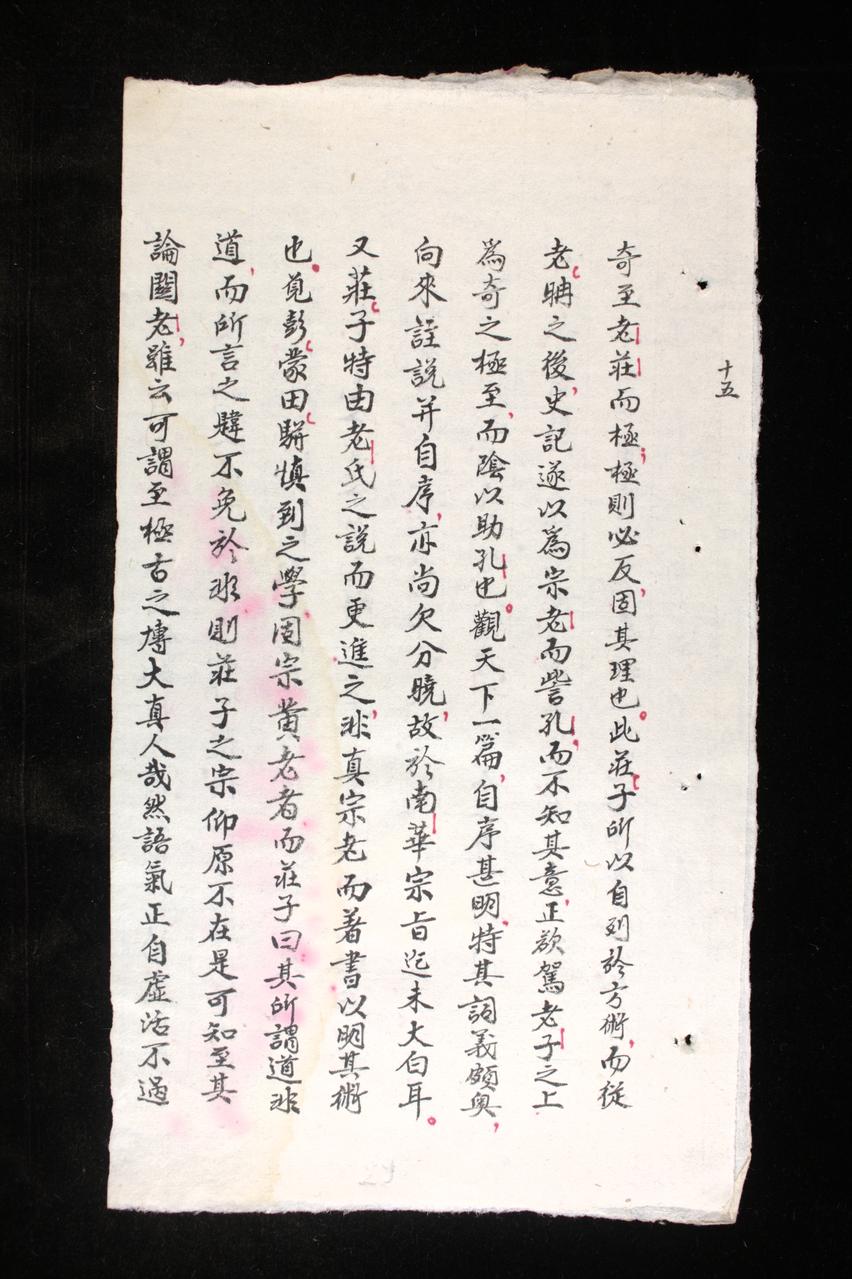 十五
奇至老莊而極極則必反固其理也此莊子所以自列於方術而從
老聃之後史記遂以為宗老而訾孔而不知其意正欲駕老子之上
為奇之極至而陰以助孔也觀天下一篇自序甚明特其詞義頗奧
向來註說并自序亦尚欠分曉故於南華宗旨迄未大白耳
又莊子特由老氏之說而更進之非真宗老而著書以明其術
也觅彭蒙田駢慎到之學固宗黃老者而莊子曰其所謂道非
道而所言之韙不免於非則莊子之宗仰原不在是可知至其
論關老雖云可謂至極古之博大真人哉然語氣正自虛活不過